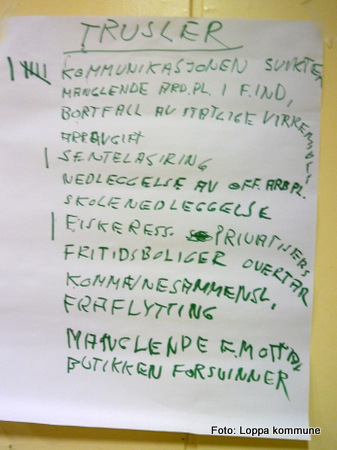 TRUSLER
KOMMUNIKASJONEN SVIKTER
MANGLENDE ARB.PL. I F.IND,
BORTFALL AV STATLIGE VIRKEMIDLER
ARB.AVGIFT
SENTELASIRING
NEDLEGGELSE AV OFF. ARB.PL.
SKOLENEDLEGGELSE
FISKERESS. PRIVATISERS
FRITIDSBOLIGER OVERTAR
KOMMUNESAMMENSL.
FRAFLYTTING
MANGLENDE F.MOTTAK
BUTIKKEN FORSVINNER
Foto: Loppa kommune